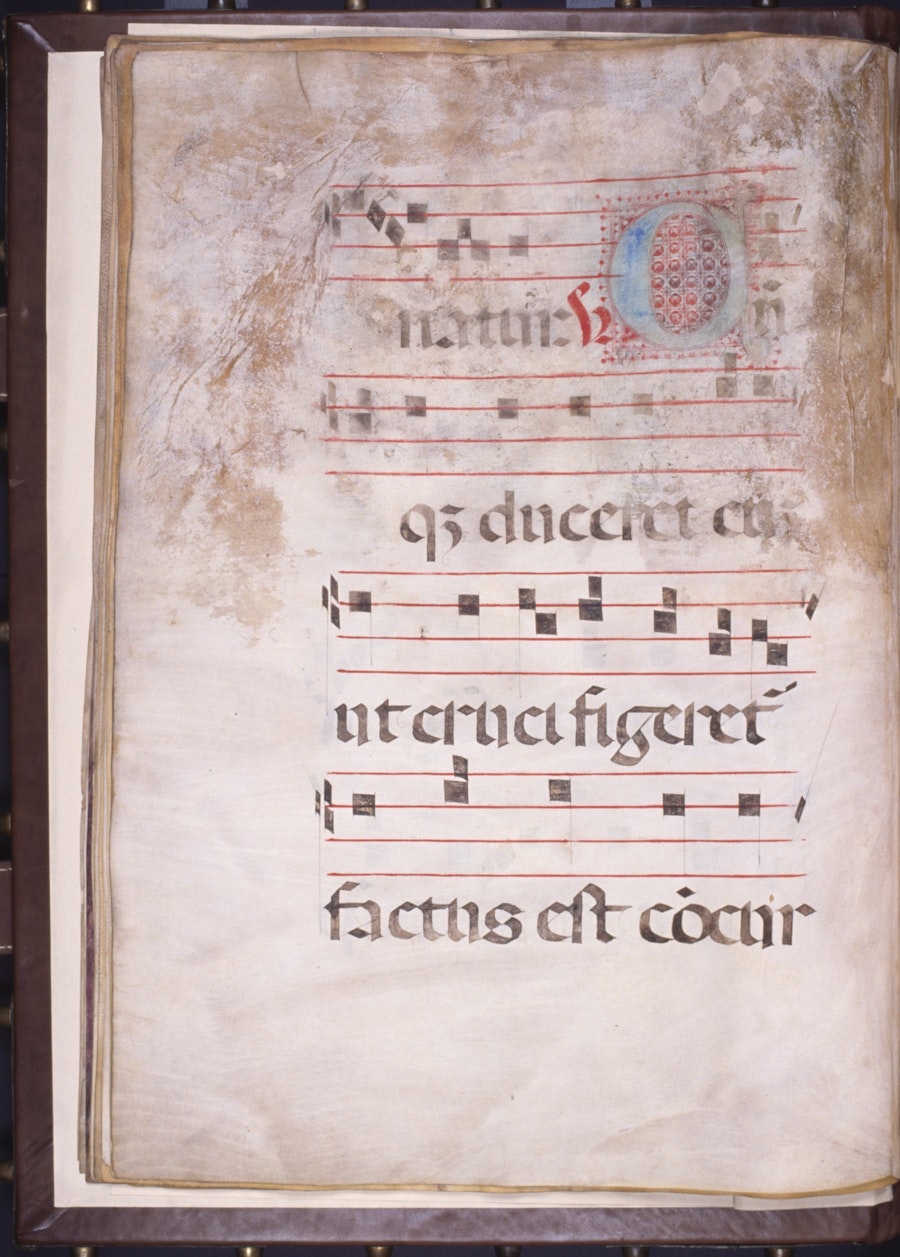 natur ℣ Cū
qꝫ duceret
ut crucifigeret᷑
factus est cōcur